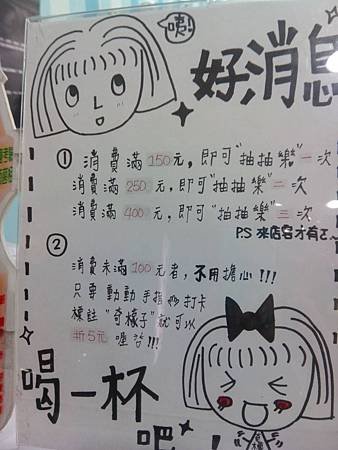 咦!
好消息
① 消費滿150元，即可"抽抽樂"一次
消費滿250元，即可"抽抽樂"二次
消費滿400元，即可"抽抽樂"三次
P.S 來店客才有ㄛ~
②
消費未滿100元者，不用擔心!!!
只要動動手指妙打卡
標註"奇檬子"就可以
折5元喔!!!
喝一杯
吧!